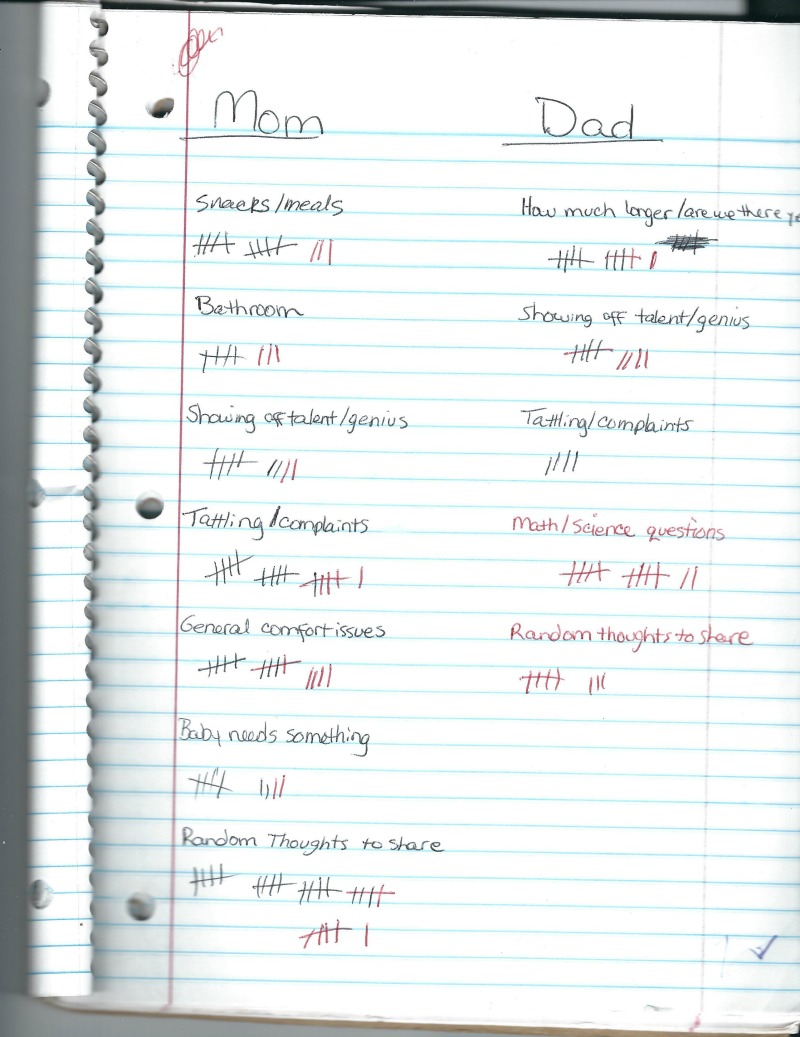 Mom Dad
Snacks/meals How much longer/are we there ye
Bathroom Showing off talent/genius
Showing off talent/genius Tattling/complaints
Tattling/complaints Math/Science questions
General comfort issues Random thoughts to share
Baby needs something
Random Thoughts to share